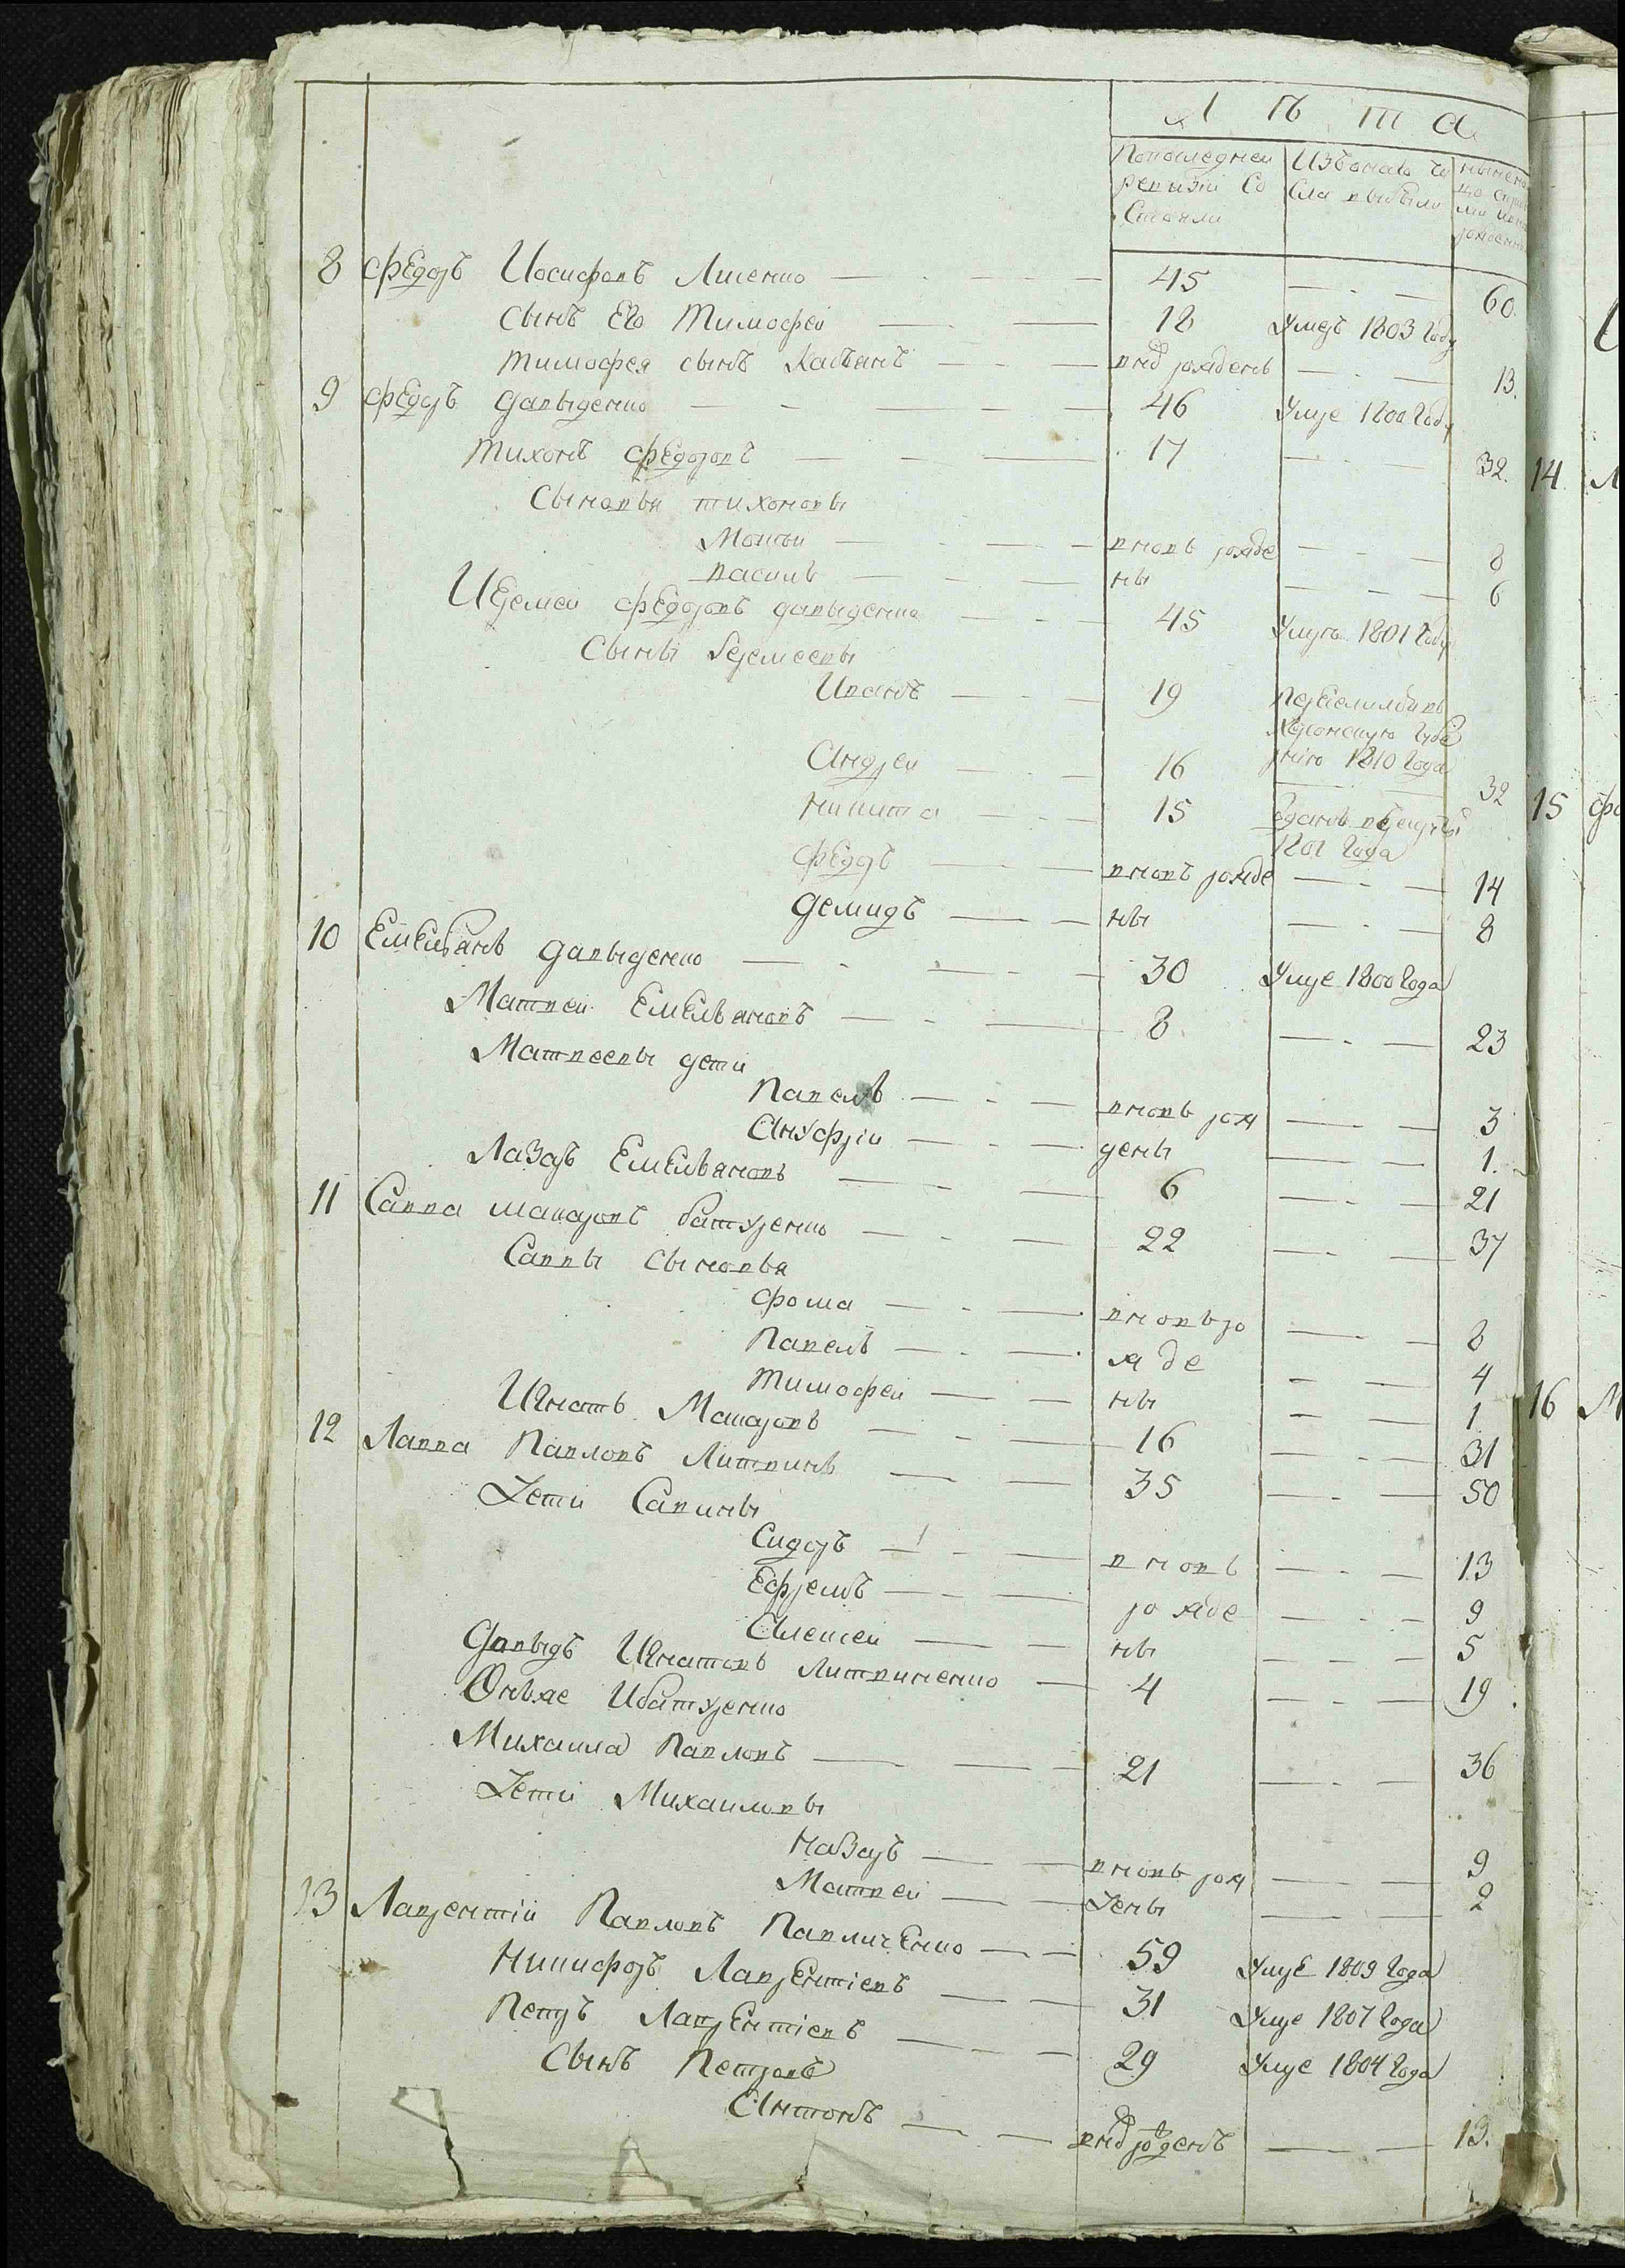 Лѣта
Попоследнеи ревизiи Состояли
Изъоного числа выбыли
ныне
8 Федоръ Иосифовъ Лисенко 45 60.
Сынъ Его Тимофеи 18 Умеръ 1803 Году
тимофея сынъ Касъянъ вно рожденъ 13.
9 Федоръ давыденко 46 Умре 1800 Году
Тихонъ Федоровъ 17 32.
Сыновья тихоновы
Мокѣи вновь рожде 8
василь ны 6
Иеремеи Федоровъ давыденко 45 Умре 1801 Году
Сыны Яремеевы
Иванъ 19 переселилъся въ
Херсонскую губе
рнiю 1810 Года
Андреи 16 32
никита 15 зданъ врекруты
1801 Года
Федоръ вновь рожде 14
демидъ ны 8
10 Емельянъ давыденко 30 Умре 1800 Года
Матвеи Емельяновъ 8 23
Матвеевы дети
Павелъ вновь рож 3
Ануфрiи дены 1.
Лазарь Емельяновъ 6 21
11 Савва макаровъ батуренко 22 37
Саввы сыновья
Фома вновь ро 8
Павелъ жде 4
Тимофеи ны 1
Игнатъ Макаровъ 16 31
12 Лавва Павловъ Литвинъ 35 50
Дети Савины
Сидоръ вновь 13
Ефремъ рожде 9
Алексеи ны 5
Давыдъ Игнатовъ литвиненко 4 19
Онъже Ибатуренко
Михаила Павловъ 21 36
Дети Михаиловы
Назаръ вновь рож 9
Матвеи Дены 2
13 Лаврентiи Павловъ Павличенко 59 Умре 1809 Года
Никифоръ Лаврентiевъ 31 Умре 1807 Года
Петръ Лаврентiевъ 29 Умре 1804 Года
Сынъ Петровъ
Антонъ вно рожденъ 13.
14
15 Фе
16 М